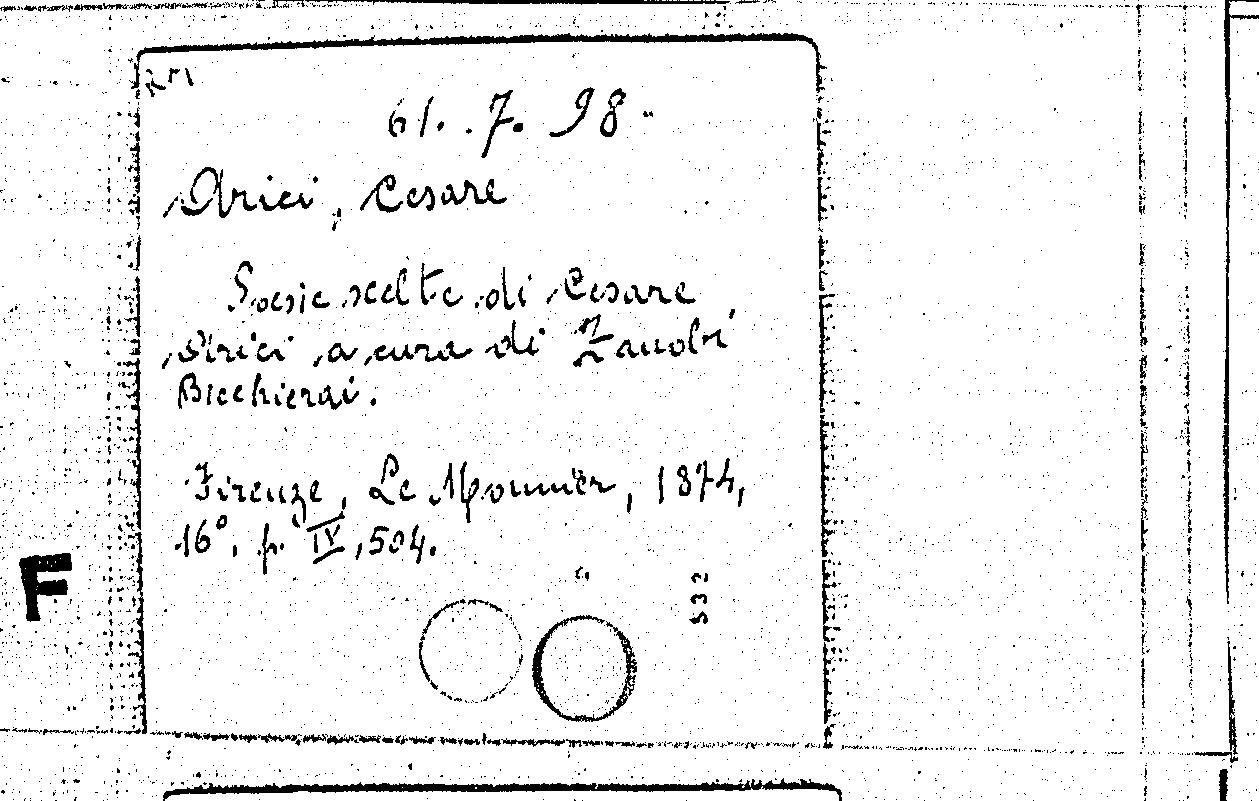 RM
61. .7. 98.
Arici, Cesare
Poesie scelte di Cesare
Arici a cura di Zanobi
Bicchierai.
Firenze, Le Monnier, 1874,
16°, p. IV, 504.
F
532